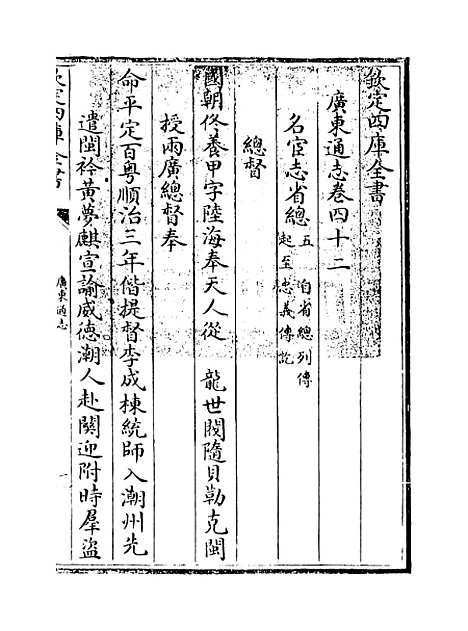 欽定四庫全書
廣東通志卷四十二
名宦志省總五　自省總列傳
起至忠義傳訖
總督
國朝佟養甲字陸海奉天人從　龍世閥隨貝勒克閩
授兩廣總督奉
命平定百粤順治三年偕提督李成棟統師入潮州先
遣閩衿黃夢麒宣諭威德潮人赴闗迎附時羣盜
欽定四庫全書
廣東通志
一